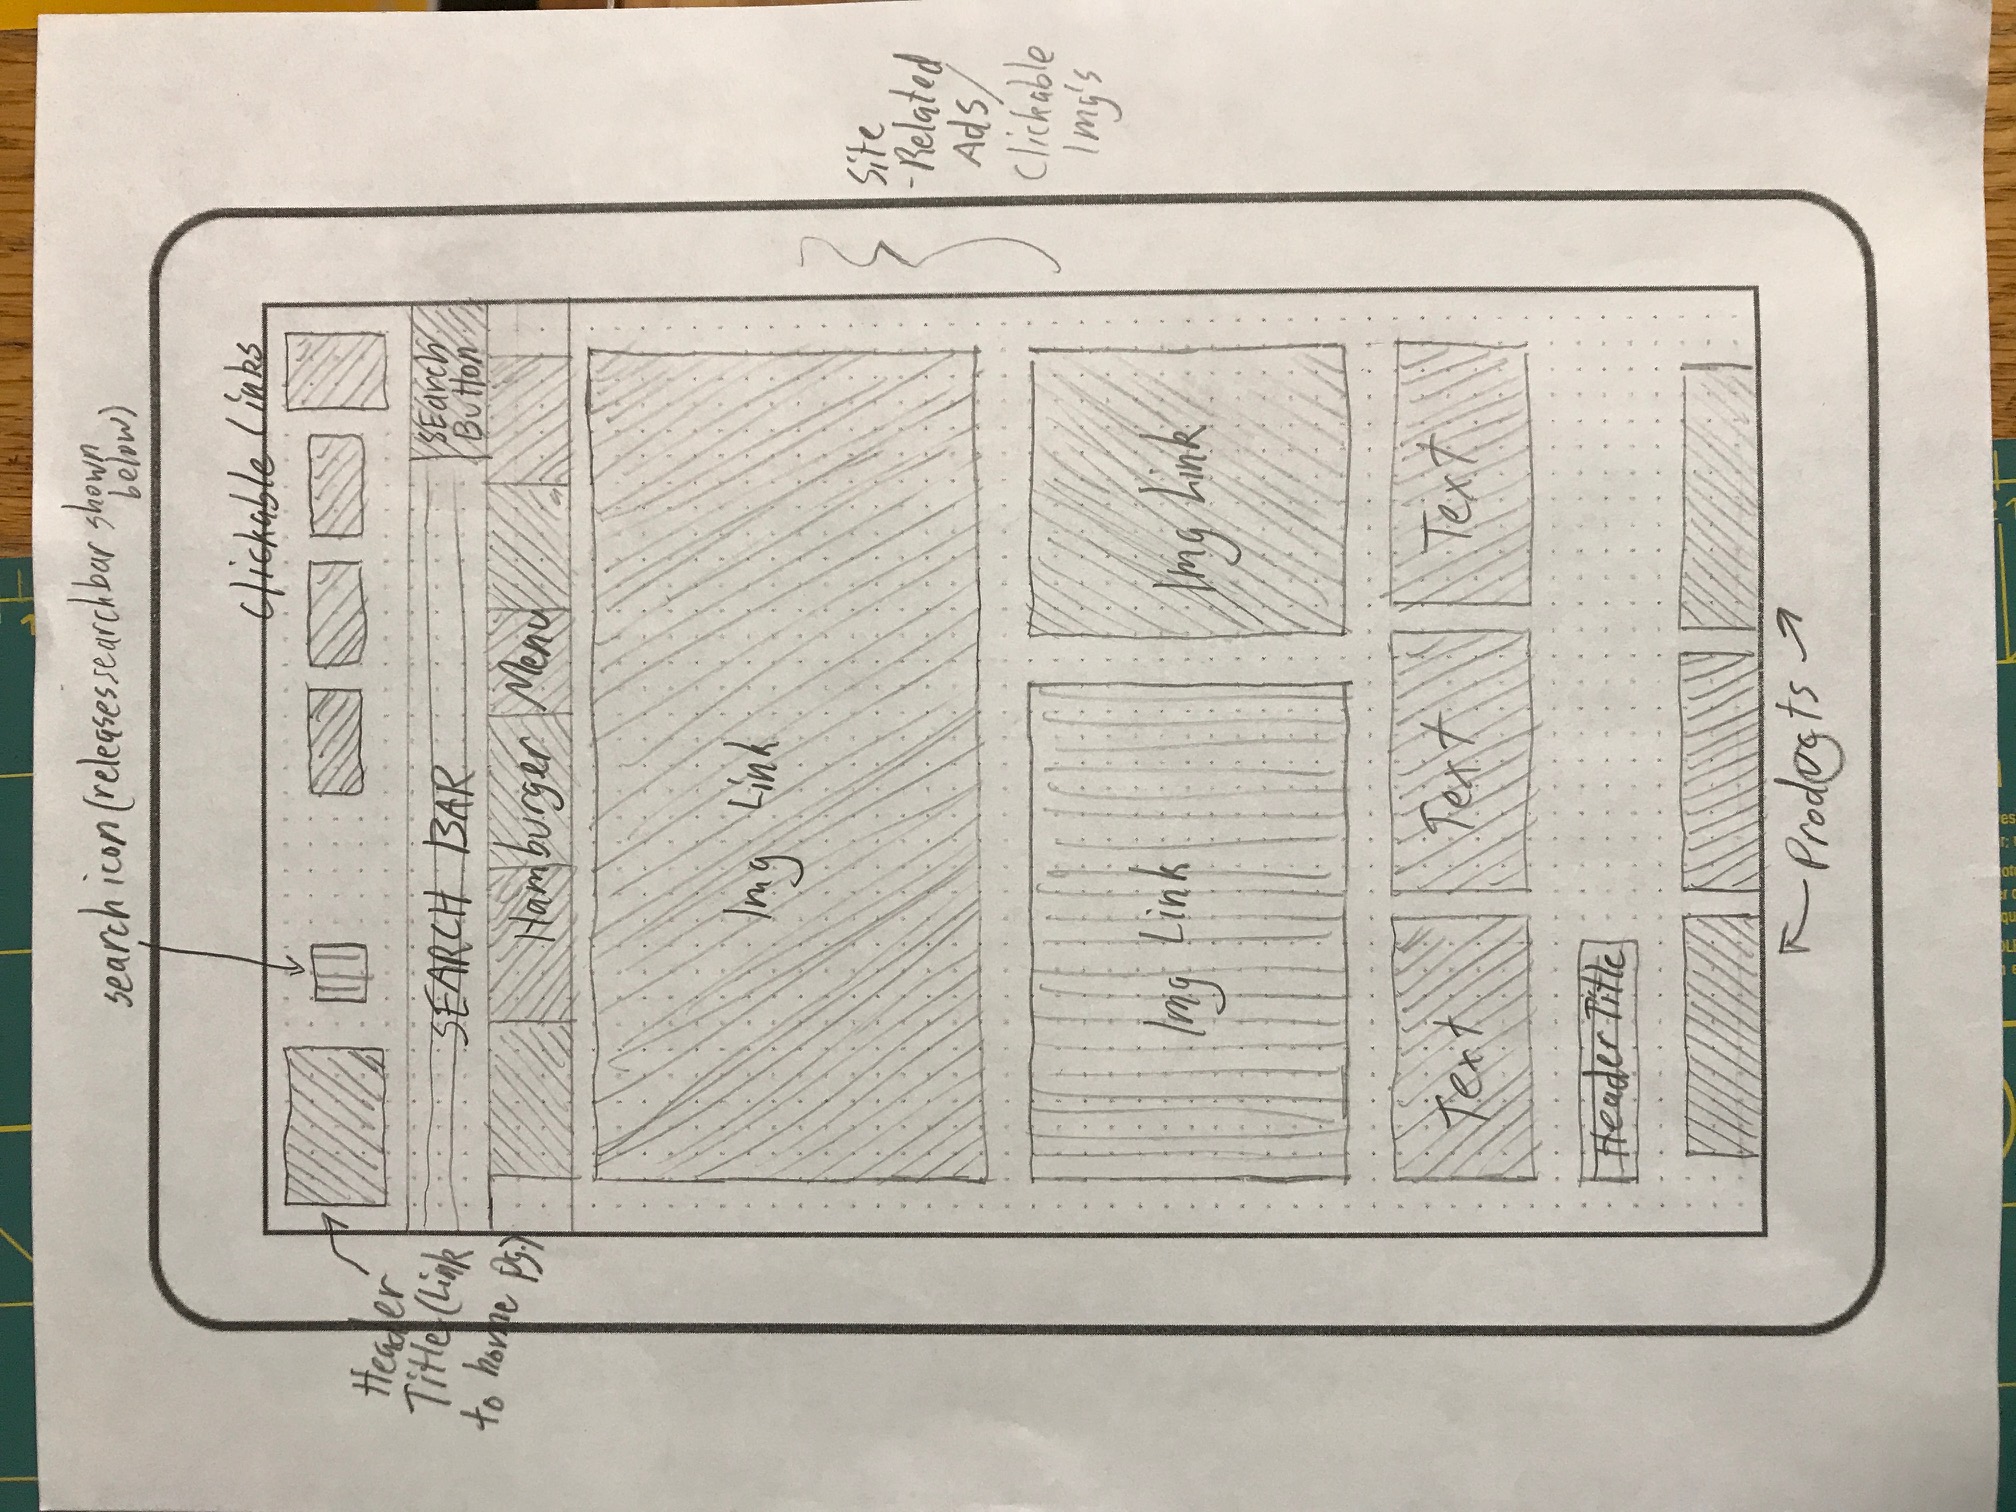 search icon (releases searchbar shown
below)
Clickable Links
Header
Title (Link
to home pg.)
SEARCH BAR
SEarch
Button
Hamburger Menu
Img Link
Site
-Related
Ads/
Clickable
Img's
Img Link
Img Link
Text
Text
Text
Header Title
Products